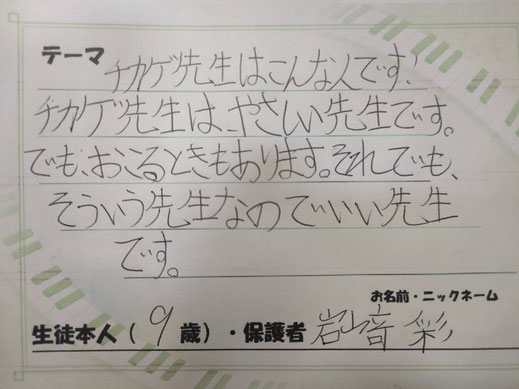 テーマ チカゲ先生はこんな人です!
チカゲ先生は、やさしい先生です。
でも、おこるときもあります。それでも、
そういう先生なのでいい先生
です。
お名前・ニックネーム
生徒本人(9歳)・保護者 岩音 彩